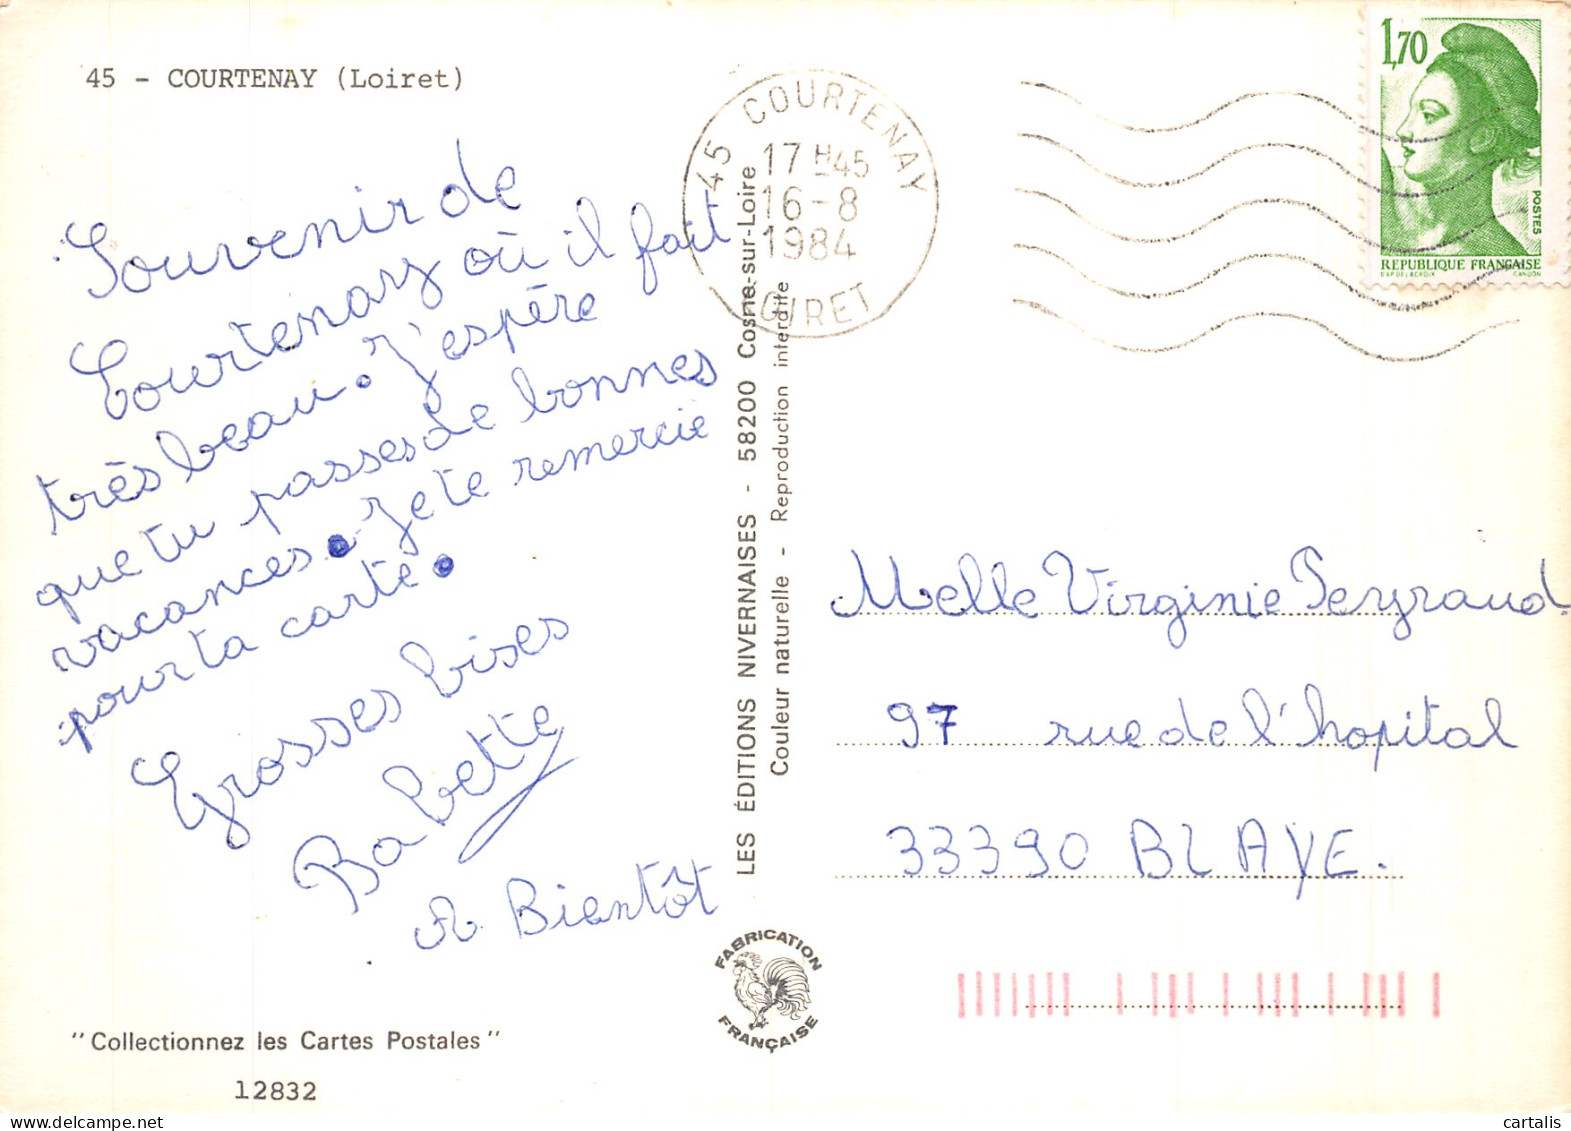 45 - COURTENAY (Loiret)
Souvenir de
Courtenay où il fait
très beau. J'espère
que tu passes de bonnes
vacances. Je te remercie
pour ta carte.
Grosses bises
Babette
A Bientôt
"Collectionnez les Cartes Postales"
12832
LES ÉDITIONS NIVERNAISES - 58200 Cosne-sur-Loire
Couleur naturelle - Reproduction interdite
FABRICATION
FRANÇAISE
45 COURTENAY
17H45
16-8
1984
LOIRET
1,70
POSTES
REPUBLIQUE FRANÇAISE
D'AP DELACROIX GANDON
Melle Virginie Peyraud
97 rue de l'hopital
33390 BLAYE.
cartalis